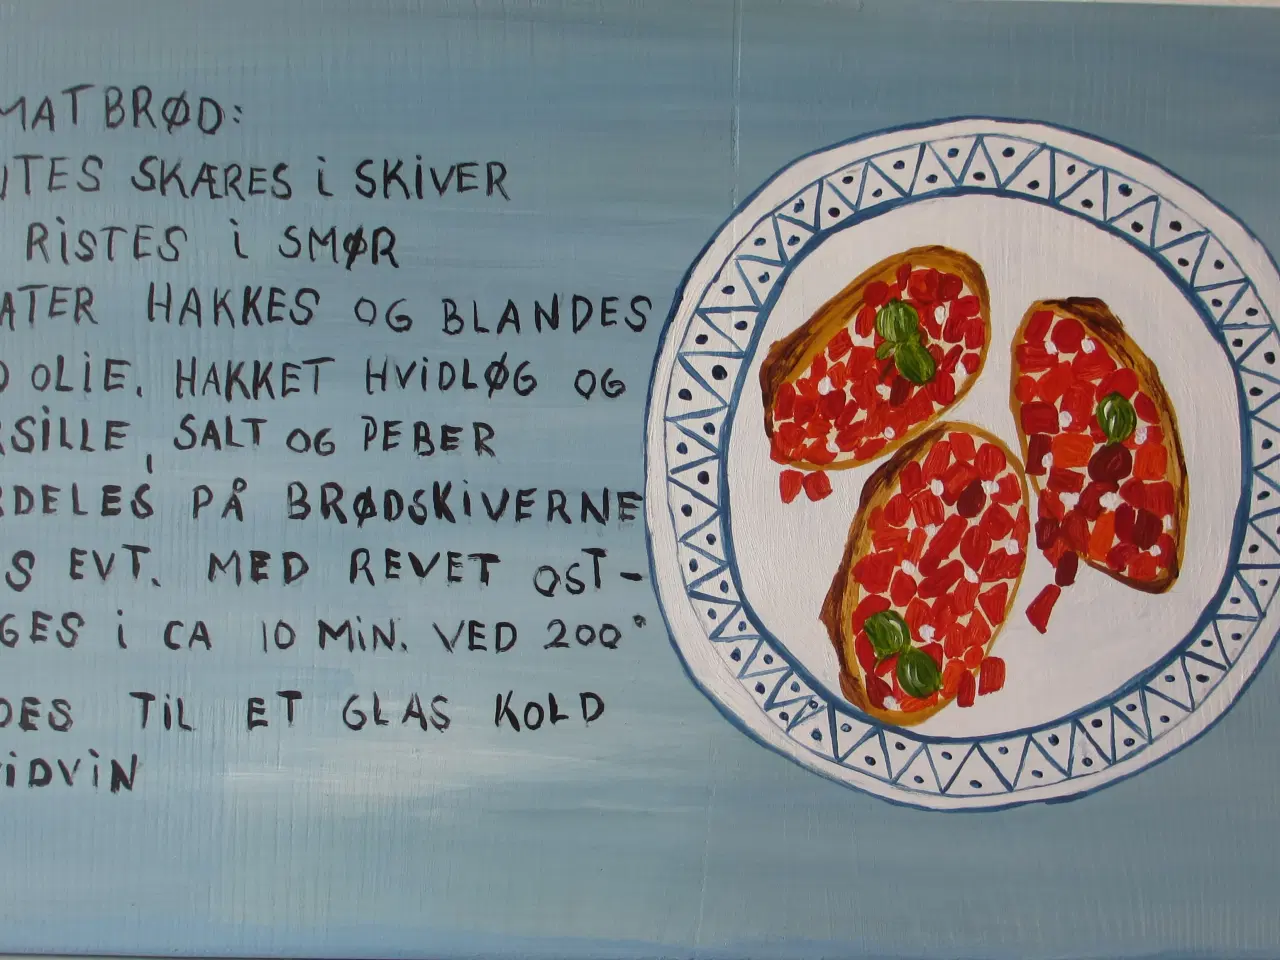 MATBRØD:
TES SKÆRES i SKiVER
RiSTES i SMØR
ATER HAKKES OG BLANDES
OLiE. HAKKET HViDLØG OG
RSiLLE, SALT OG PEBER
RDELES PÅ BRØDSKiVERNE
S EVT. MED REVET OST-
GES i CA 10 MiN. VED 200°
DES TiL ET GLAS KOLD
iDViN